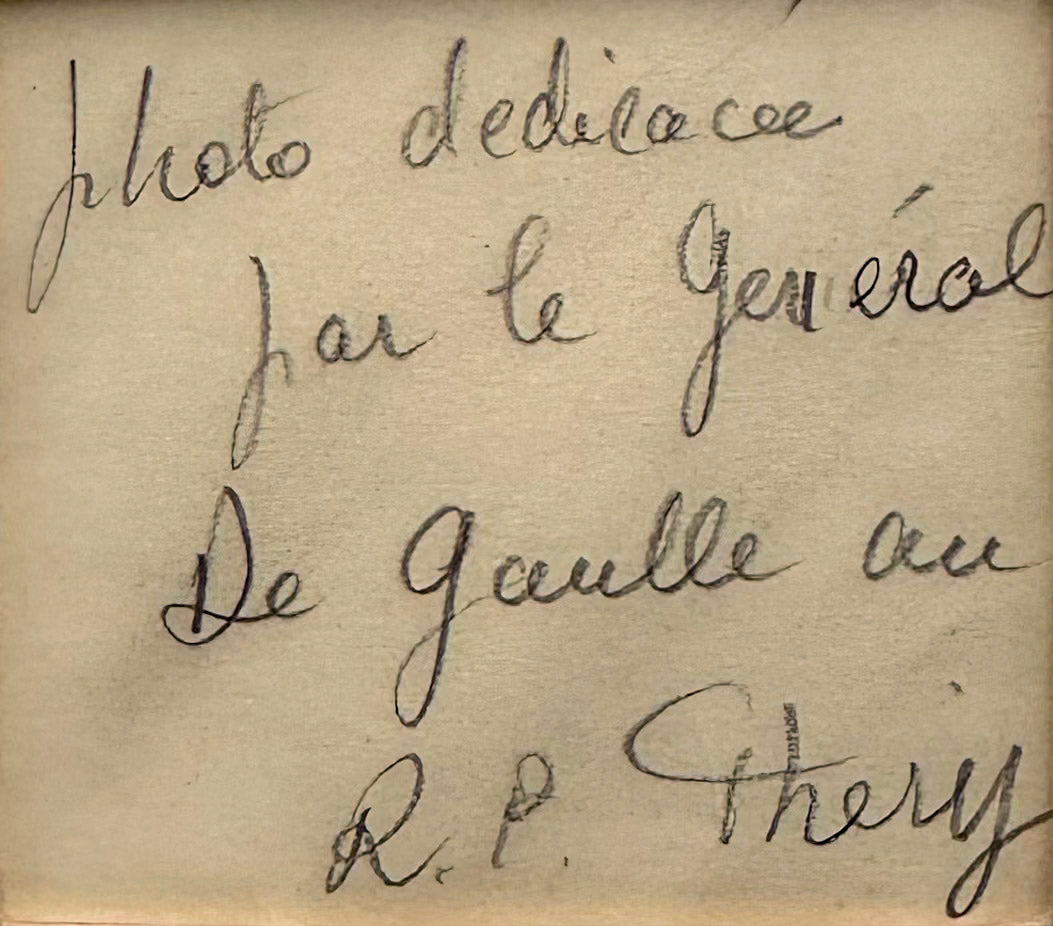 photo dedicacee
par le Général
De Gaulle au
R. P. Thery